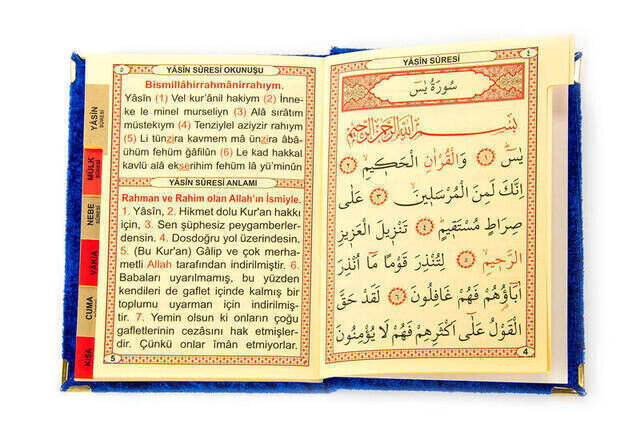 YÂSİN SÛRESİ OKUNUŞU
Bismillâhirrahmânirrahıym.
Yâsîn (1) Vel kur'ânil hakiym (2) İnne-
ke le minel murseliyn (3) Alâ sırâtım
müstekıym (4) Tenziylel aziyzir rahıym
(5) Li tünzira kavmem mâ ünzira âbâ-
ühüm fehüm ğâfilûn (6) Le kad hakkal
kavlü alâ ekserihim fehüm lâ yü'minûn
YÂSİN SÛRESİ ANLAMI
Rahman ve Rahim olan Allah'ın ismiyle.
1. Yâsîn, 2. Hikmet dolu Kur'an hakkı
için, 3. Sen şüphesiz peygamberler-
densin. 4. Dosdoğru yol üzerindesin.
5. (Bu Kur'an) Gâlip ve çok merha-
metli Allah tarafından indirilmiştir. 6.
Babaları uyarılmamış, bu yüzden
kendileri de gaflet içinde kalmış bir
toplumu uyarman için indirilmiş-
tir. 7. Yemin olsun ki onların çoğu
gafletlerinin cezasını hak etmişler-
dir. Çünkü onlar îmân etmiyorlar.
5
YÂSİN
SÛRESİ
MÜLK
NEBE
SÛRESİ
VÂKIA
CUMA
KISA
YÂSİN SÛRESİ
٤
سُورَةُ يٰسٓ
بِسْمِ اللّٰهِ الرَّحْمٰنِ الرَّحِيمِ
يٰسٓ ﴿١﴾ وَالْقُرْاٰنِ الْحَكِيمِ ﴿٢﴾
اِنَّكَ لَمِنَ الْمُرْسَلِينَ ﴿٣﴾ عَلٰى
صِرَاطٍ مُسْتَقِيمٍ ﴿٤﴾ تَنْزِيلَ الْعَزِيزِ
الرَّحِيمِ ﴿٥﴾ لِتُنْذِرَ قَوْمًا مَٓا اُنْذِرَ
اٰبَٓاؤُهُمْ فَهُمْ غَافِلُونَ ﴿٦﴾ لَقَدْ حَقَّ
الْقَوْلُ عَلٰٓى اَكْثَرِهِمْ فَهُمْ لَا يُؤْمِنُونَ
4